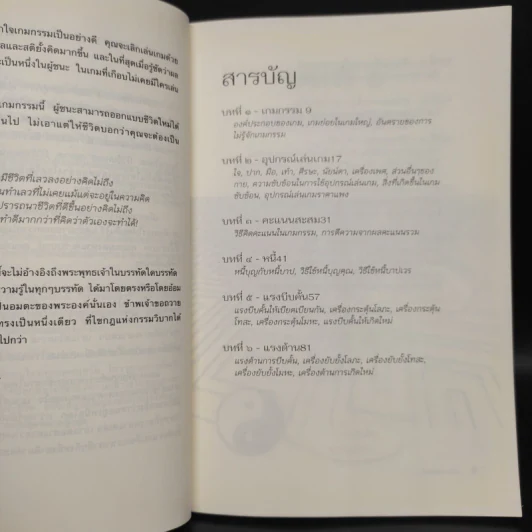 าใจเกมกรรมเป็นอย่างดี คุณจะเลิกเล่นเกมด้วย
ลและสติยั้งคิดมากขึ้น และในที่สุดเมื่อรู้ชัดว่าผล
ะเป็นหนึ่งในผู้ชนะ ในเกมที่เกือบไม่เคยมีใครเล่น
กมกรรมนี้ ผู้ชนะสามารถออกแบบชีวิตใหม่ได้
นไป ไม่เอาแต่ให้ชีวิตบอกว่าคุณจะต้องเป็น
มีชีวิตที่เลวลงอย่างคิดไม่ถึง
นทำเลวที่ไม่เคยแม้แต่จะอยู่ในความคิด
ปรารถนาชีวิตที่ดีขึ้นอย่างคิดไม่ถึง
ทำดีมากกว่าที่คิดว่าตัวเองจะทำได้!
้จะไม่อ้างอิงถึงพระพุทธเจ้าในบรรทัดใดบรรทัด
ความรู้ในทุกๆบรรทัด ได้มาโดยตรงหรือโดยอ้อม
ป็นอมตะของพระองค์นั่นเอง ข้าพเจ้าขอถวาย
ทรงเป็นหนึ่งเดียว ที่ไขกฎแห่งกรรมวิบากได้
ไปกว่า
สารบัญ
บทที่ ๑ - เกมกรรม 9
องค์ประกอบของเกม, เกมย่อยในเกมใหญ่, อันตรายของการ
ไม่รู้จักเกมกรรม
บทที่ ๒ - อุปกรณ์เล่นเกม17
ใจ, ปาก, มือ, เท้า, ศีรษะ, นัยน์ตา, เครื่องเพศ, ส่วนอื่นๆของ
กาย, ความซับซ้อนในการใช้อุปกรณ์เล่นเกม, สิ่งที่เกิดขึ้นในเกม
ซับซ้อน, อุปกรณ์เล่นเกมราคาแพง
บทที่ ๓ - คะแนนสะสม31
วิธีคิดคะแนนในเกมกรรม, การตีความจากผลคะแนนรวม
บทที่ ๔ - หนี้41
หนี้บุญกับหนี้บาป, วิธีใช้หนี้บุญคุณ, วิธีใช้หนี้บาปเวร
บทที่ ๕ - แรงบีบคั้น57
แรงบีบคั้นให้เบียดเบียนกัน, เครื่องกระตุ้นโลภะ, เครื่องกระตุ้น
โทสะ, เครื่องกระตุ้นโมหะ, แรงบีบคั้นให้เกิดใหม่
บทที่ ๖ - แรงต้าน81
แรงต้านการบีบคั้น, เครื่องยับยั้งโลภะ, เครื่องยับยั้งโทสะ,
เครื่องยับยั้งโมหะ, เครื่องต้านการเกิดใหม่